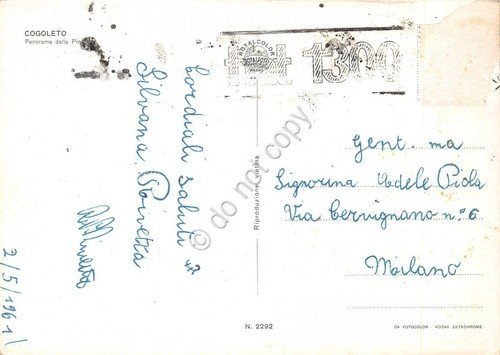 COGOLETO
Panorama dalla
TOTALCOLOR
1300
Cordiali saluti
Silvana
2/5/1961
Riproduzione vietata
© do not copy
Gent. ma
Signorina Adele Piola
Via Cervignano n° 6
Milano
N. 2292
DA FOTOCOLOR - KODAK EKTACHROME